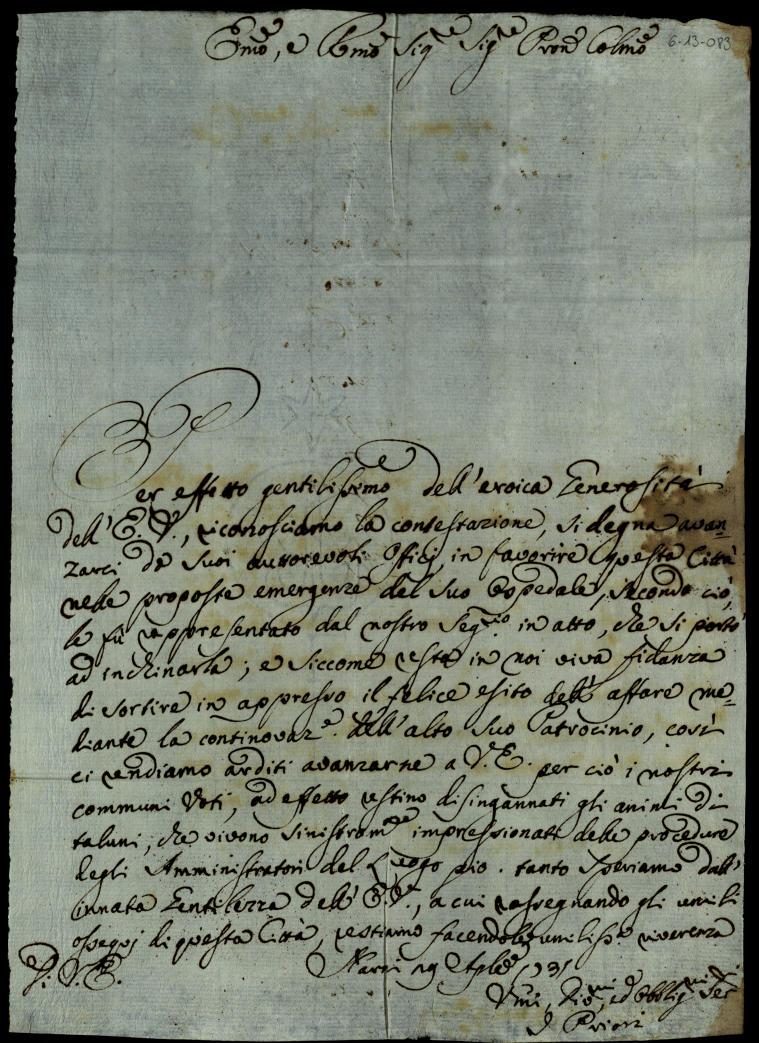 Emo, e Rmo Sigre Sigre Pron Colmo
6-13-083
Per effetto gentilissimo dell'eroica Generosità
dell'E. V., riconosciamo la contestazione, si degna avan=
zarci de suoi autorevoli Offici, in favorire questa Città
nelle proposte emergenze del suo Ospedale, secondo ciò,
le fù rappresentato dal nostro Segrio in atto, che si portò
ad inchinarla; e siccome resta in noi viva fidanza
di sortire in appresso il felice esito dell'affare me=
diante la continovaze dell'alto suo Patrocinio, così
ci rendiamo arditi avanzarne a V. E. per ciò i nostri
communi Voti, ad effetto restino disingannati gli animi di
taluni, che vivono sinistramte impressionati delle procedure
degli Amministratori del Luogo pio. tanto speriamo dall'
innata Gentilezza dell'E. V., a cui rassegnando gli umili
ossequj di questa Città, restiamo facendole umilissa riverenza
Di V. E.
Narni Aple 1731
Umi, ed Obbligmi
I Priori